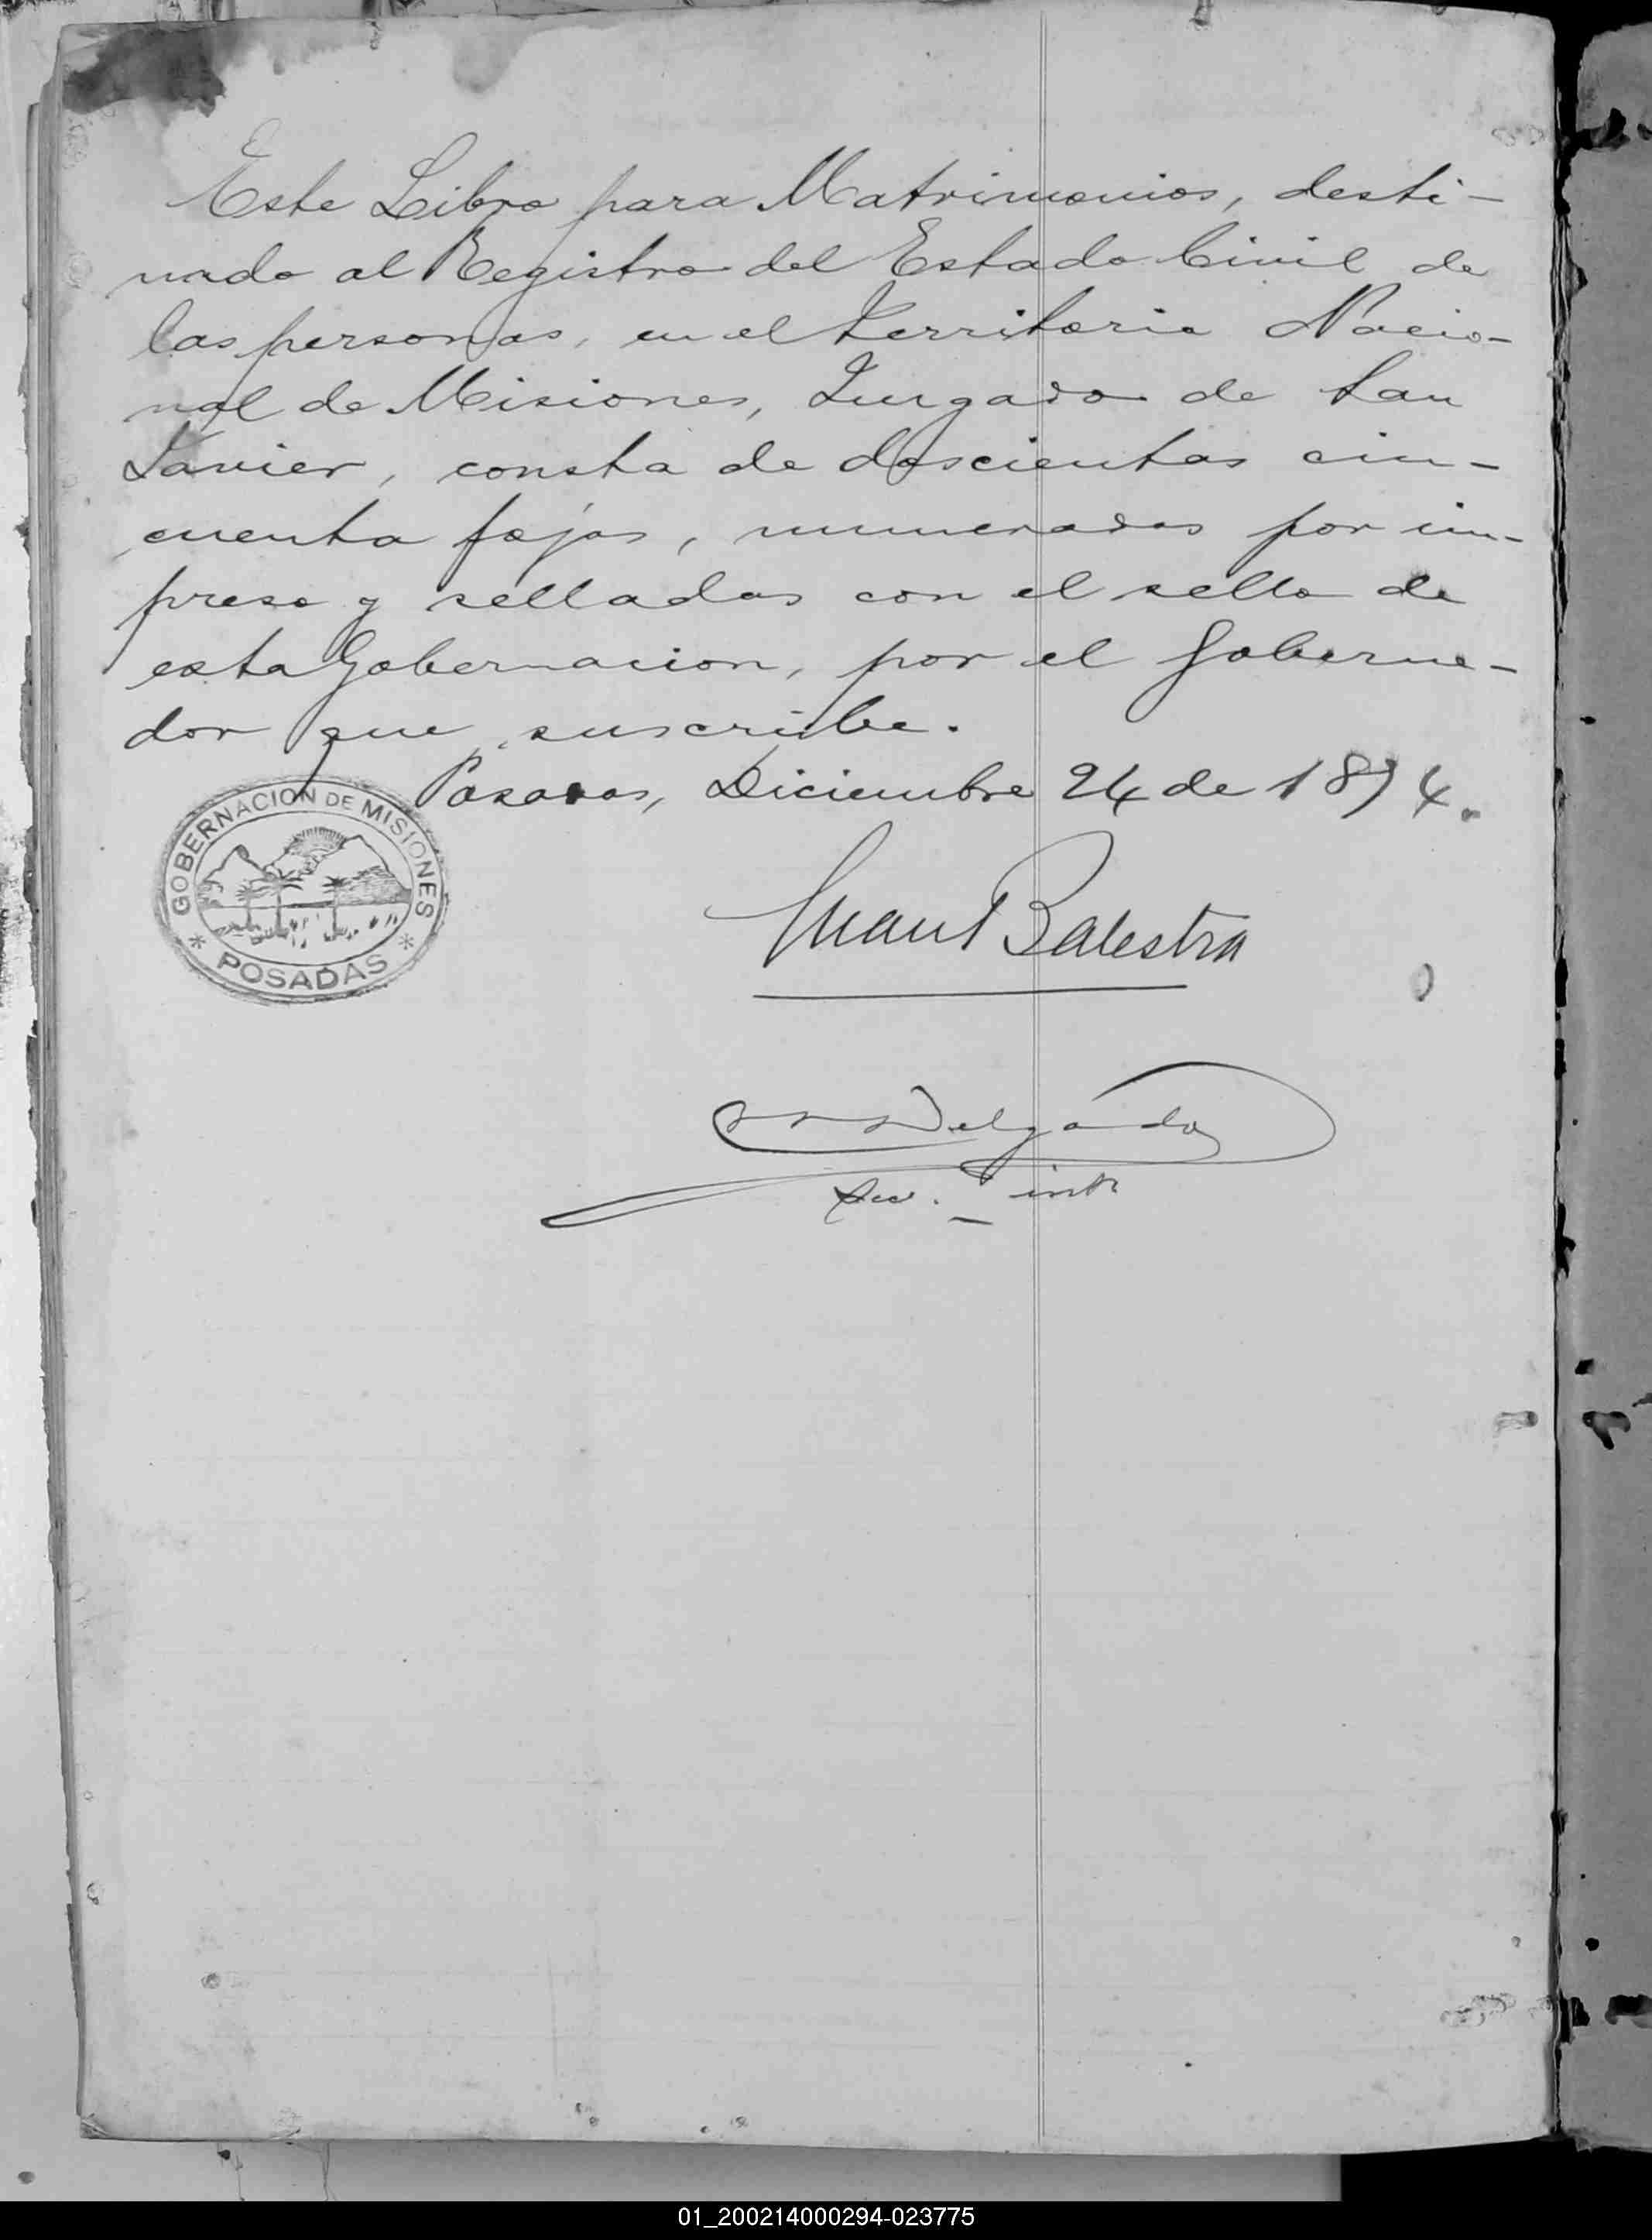 Este Libro para Matrimonios, desti-
nado al Registro del Estado Civil de
las personas, en el territorio Nacio-
nal de Misiones, Juzgado de San
Javier, consta de doscientas cin-
cuenta fojas, numeradas por im-
preso y selladas con el sello de
esta Gobernacion, por el Goberna-
dor que suscribe.
Posadas, Diciembre 24 de 1894.
GOBERNACION DE MISIONES
* POSADAS *
Juan Balestra
Delgado
Sec. int
01_200214000294-023775